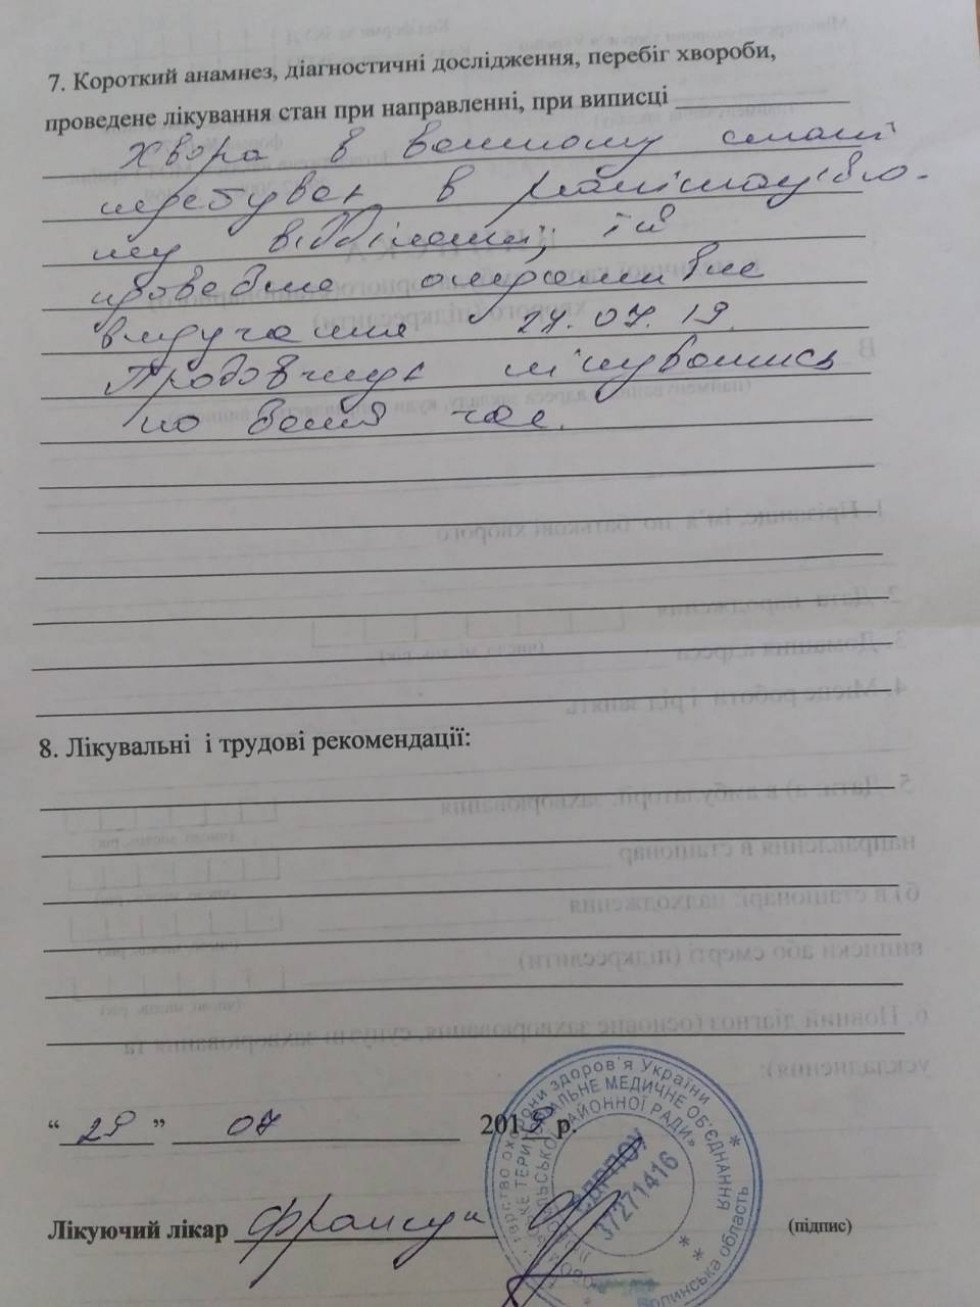 7. Короткий анамнез, діагностичні дослідження, перебіг хвороби,
проведене лікування стан при направленні, при виписці
Хвора в важкому стані
перебуває в реанімаційно-
му відділенні, їй
проведене оперативне
втручання 27.07.19.
Продовжує лікуватись
по даний час.
8. Лікувальні і трудові рекомендації:
“ 29 ” 07 2019 р.
Лікуючий лікар
(підпис)
охорони здоров'я України
ТЕРИТОРІАЛЬНЕ МЕДИЧНЕ ОБ'ЄДНАННЯ
РАЙОННОЇ РАДИ»
ЄДРПОУ
37271416
Волинська область